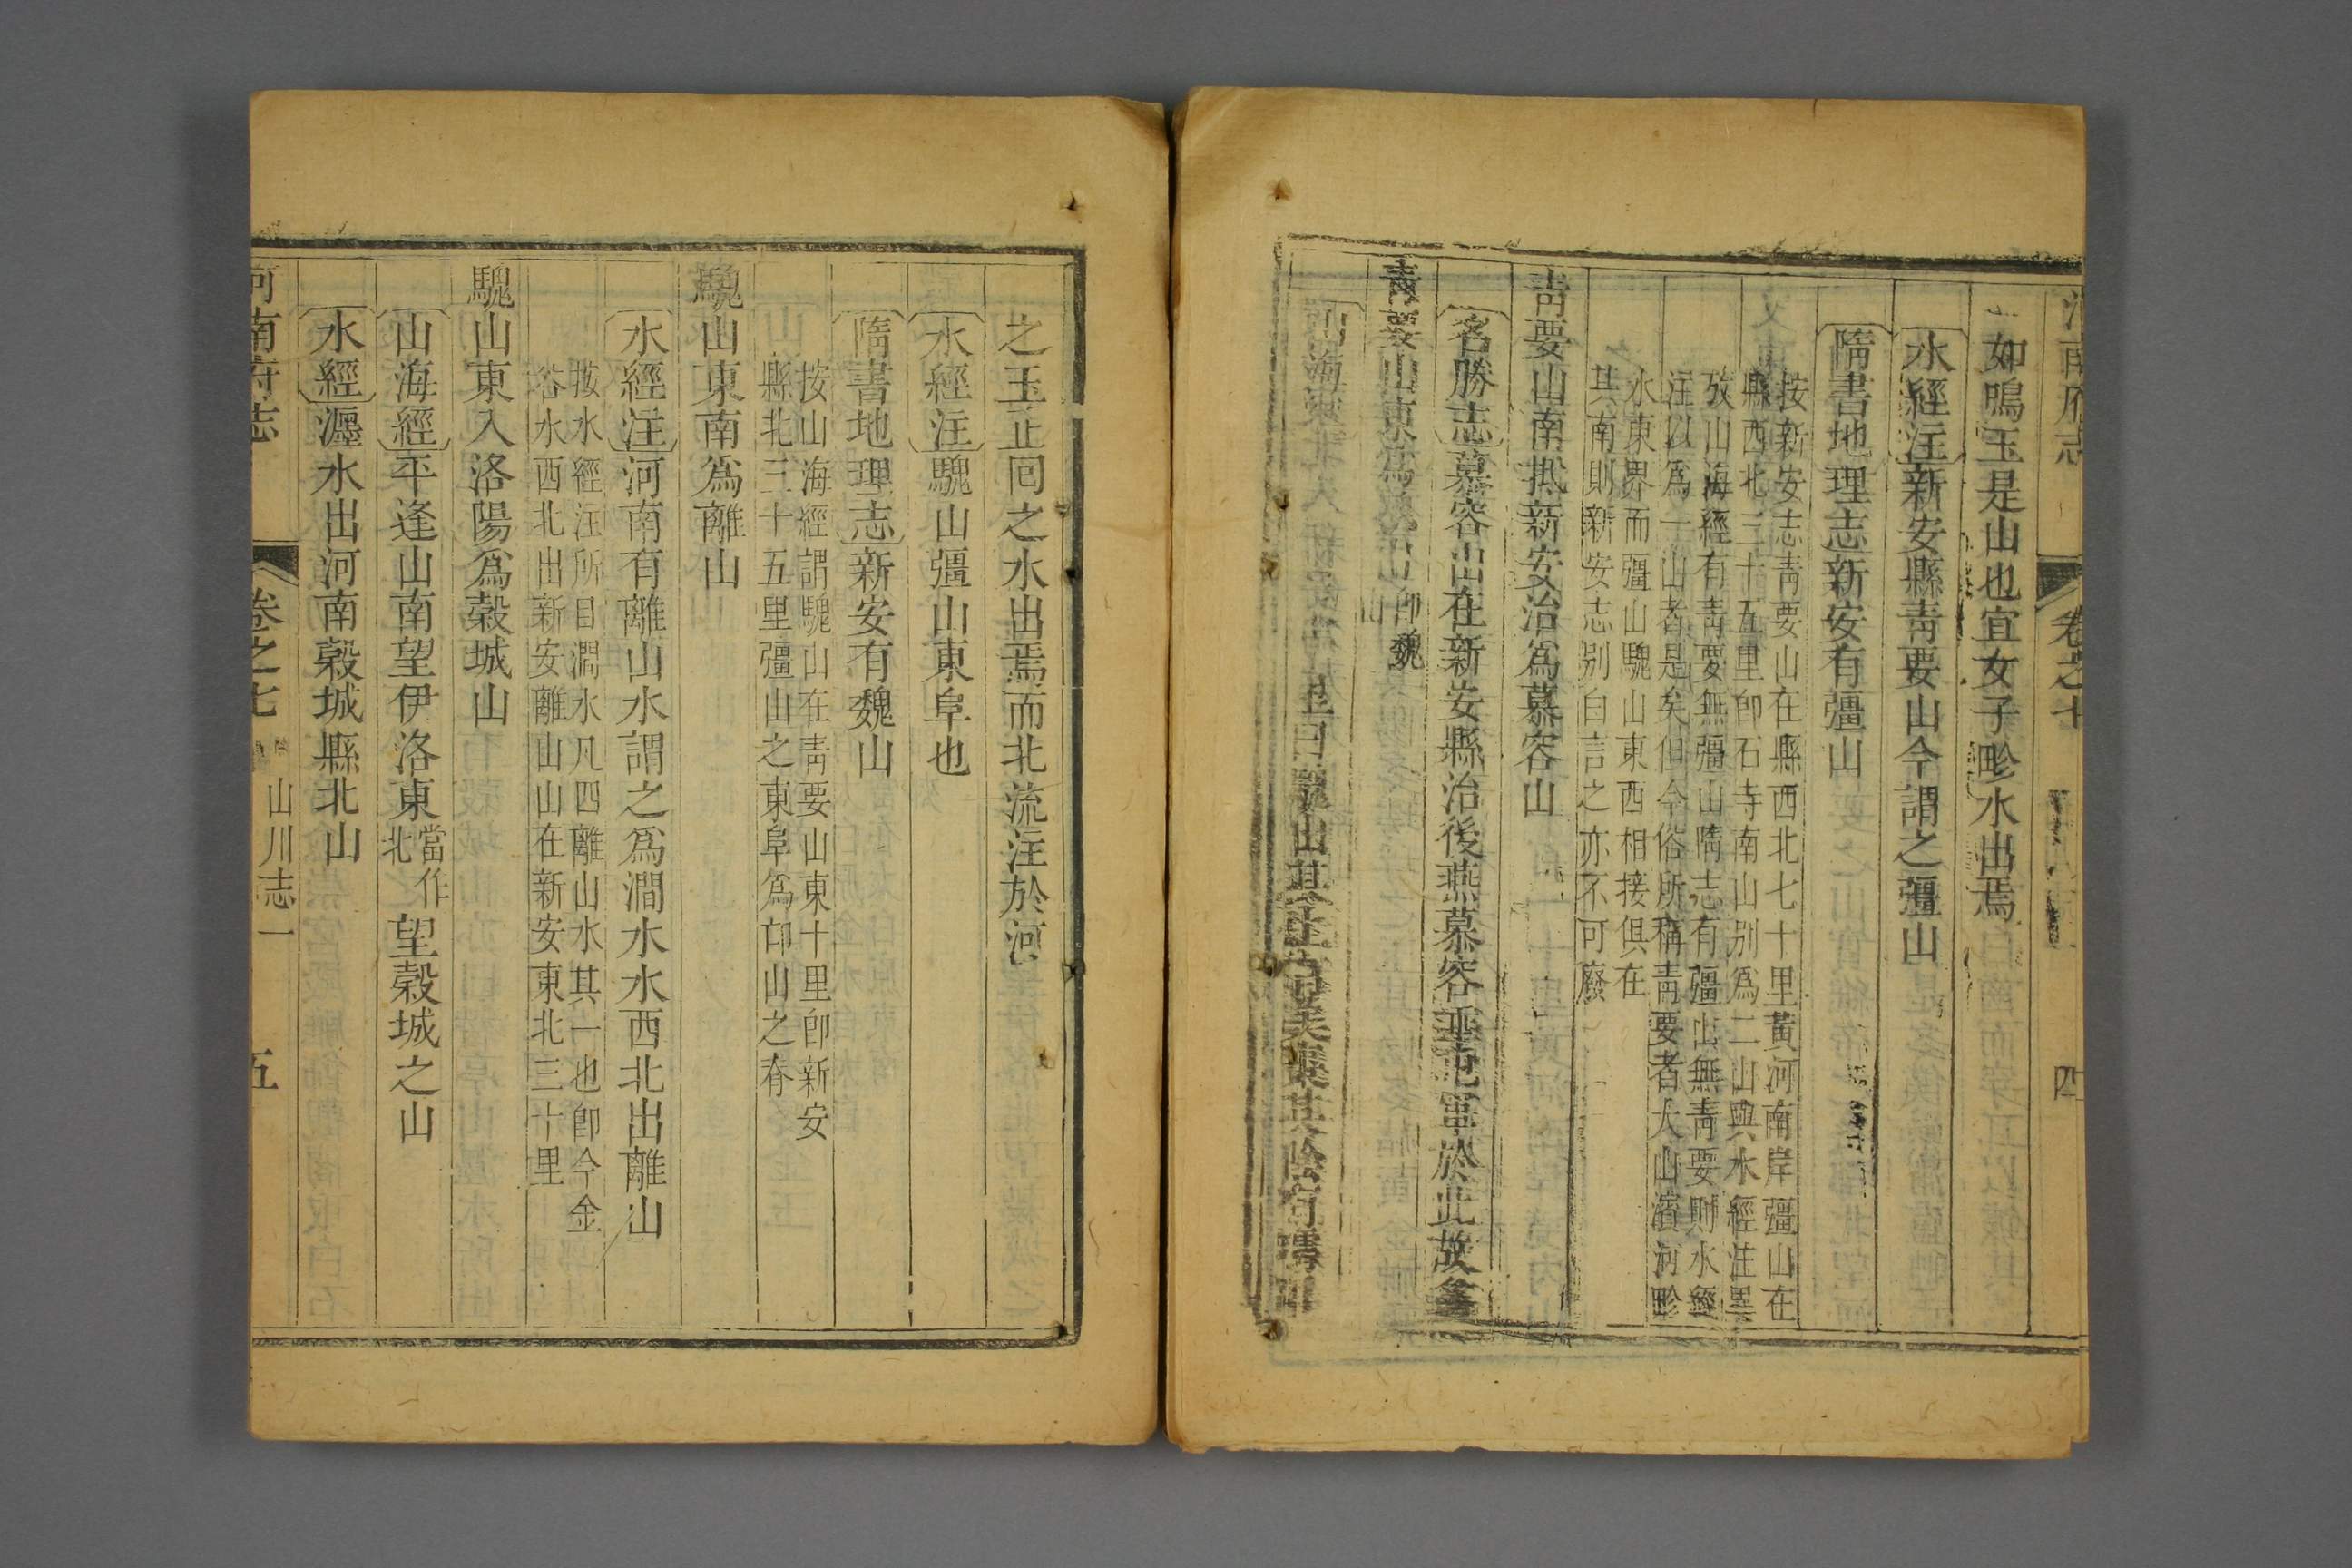 河南府志
卷之七
四
如鳴玉是山也宜女子畛水出焉
水經注新安縣青要山今謂之彊山
隋書地理志新安有彊山
按新安志青要山在縣西北七十里黃河南岸彊山在
縣西北三十五里卽石寺南山別爲二山與水經注異
攷山海經有青要無彊山隋志有彊山無青要則水經
注以爲一山者是矣但今俗所稱青要者大山濱河畛
水東界而彊山騩山東西相接俱在
其南則新安志別白言之亦不可廢
青要山南抵新安治爲慕容山
名勝志慕容山在新安縣治後燕慕容垂屯軍於此故名
青要山東爲騩山卽魏
山
山海經北
里曰騩山其
之玉正回之水出焉而北流注於河
水經注騩山彊山東阜也
隋書地理志新安有魏山
按山海經謂騩山在青要山東十里卽新安
縣北三十五里彊山之東阜爲邙山之脊
騩山東南爲離山
水經注河南有離山水謂之爲澗水水西北出離山
按水經注所目澗水凡四離山水其一也卽今金
谷水西北出新安離山山在新安東北三十里
騩山東入洛陽爲榖城山
山海經平逢山南望伊洛東當作
北望榖城之山
水經瀍水出河南榖城縣北山
河南府志
卷之七
山川志一
五